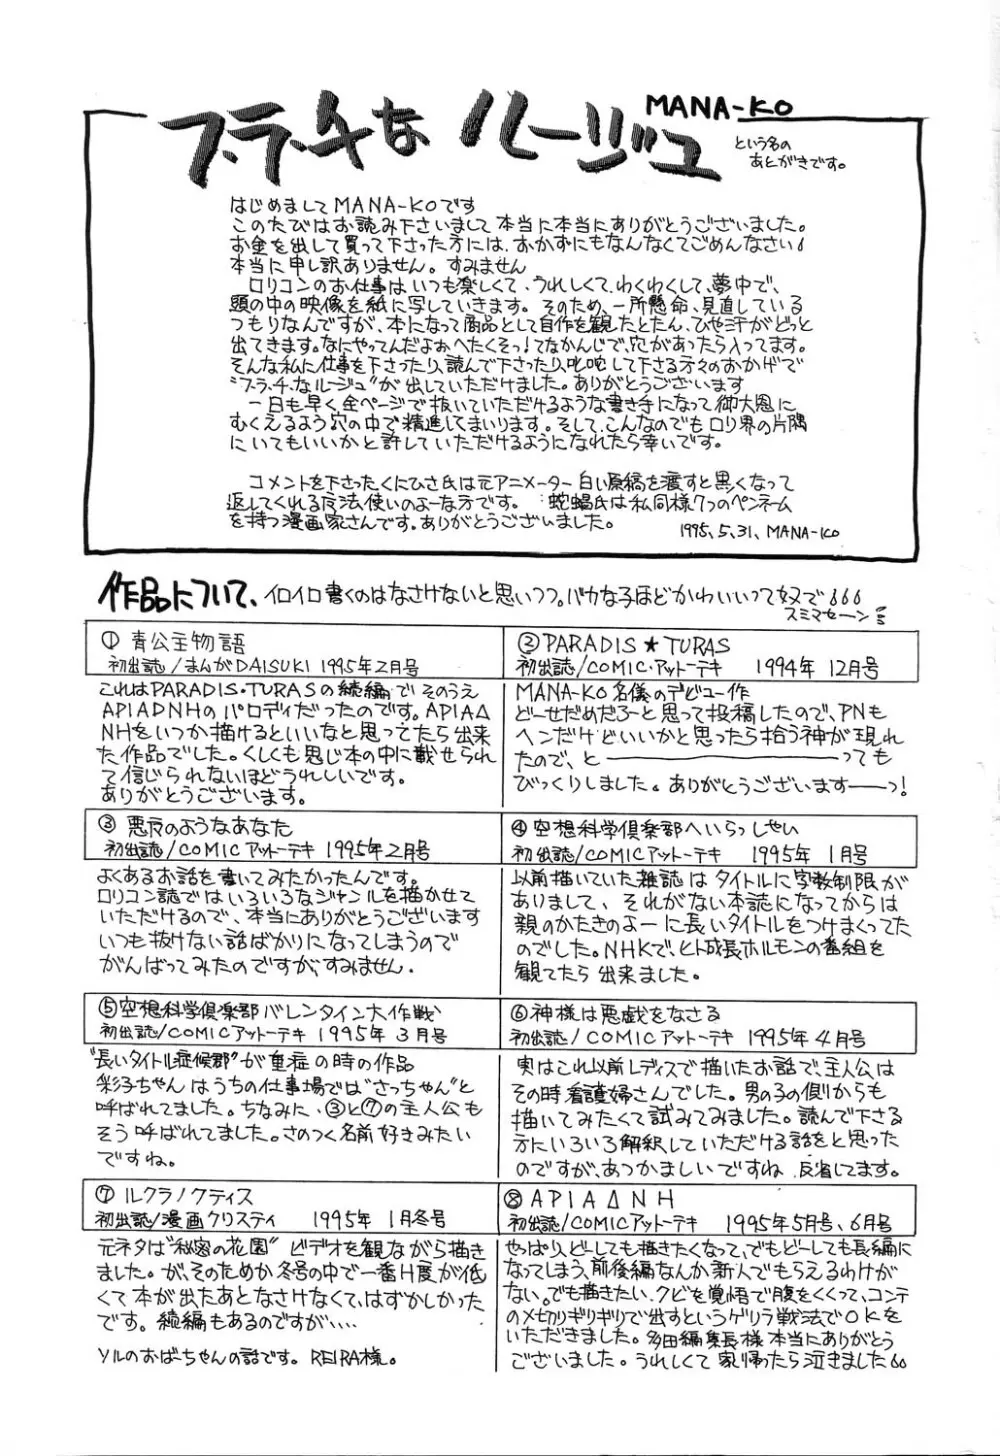 MANA-KO
フ・ラ・チな ルージュ
という名の
あとがきです。
はじめましてMANA-KOです
このたびはお読み下さいまして本当に本当にありがとうございました。
お金を出して買って下さった方には、おかずにもなんなくてごめんなさい
本当に申し訳ありません。すみません
ロリコンのお仕事はいつも楽しくて、うれしくて、わくわくして、夢中で、
頭の中の映像を紙に写していきます。そのため、一所懸命、見直している
つもりなんですが、本になって商品として自作を観たとたん、ひや汗がどっと
出てきます。なにやってんだよおへたくそっ！てなかんじで、穴があったら入ってます。
そんな私に仕事を下さったり、読んで下さったり、叱咤して下さる方々のおかげで
"フ・ラ・チ・なルージュ"が出していただけました。ありがとうございます
一日も早く全ページで抜いていただけるような書き手になって御大恩に
むくえるよう穴の中で精進してまいります。そして、こんなのでもロリ界の片隅
にいてもいいかと許していただけるようになれたら幸いです。
コメントを下さった、くにひさ氏は元アニメーター 白い原稿を渡すと黒くなって
返してくれる魔法使いのよーな方です。蛇蝎氏は私同様7つのペンネーム
を持つ漫画家さんです。ありがとうございました。
1995.5.31. MANA-KO
作品について、イロイロ書くのはなさけないと思いつつ。バカな子ほどかわいいって奴で
スミマセーン
① 青公主物語
初出誌/まんがDAISUKI 1995年2月号
これはPARADIS・TURASの続編で そのうえ
APIAΔNHのパロディだったのです。APIAΔ
NHをいつか描けるといいなと思ってたら出来
た作品でした。くしくも同じ本の中に載せられ
て信じられないほどうれしいです。
ありがとうございます。
② PARADIS★TURAS
初出誌/COMIC・アットーテキ 1994年 12月号
MANA-KO名儀のデビュー作
どーせだめだろーと思って投稿したので、PNも
ヘンだけどいいかと思ったら拾う神が現れ
たので、と――――――――っても
びっくりしました。ありがとうございますーーっ！
③ 悪戻のようなあなた
初出誌/COMICアットーテキ 1995年2月号
よくあるお話を書いてみたかったんです。
ロリコン誌ではいろいろなジャンルを描かせて
いただけるので、本当にありがとうございます
いつも抜けない話ばかりになってしまうので
がんばってみたのですが、すみません.
④ 空想科学倶楽部へいらっしゃい
初出誌/COMICアットーテキ 1995年 1月号
以前描いていた雑誌はタイトルに字数制限が
ありまして、それがない本誌になってからは
親のかたきのよーに長いタイトルをつけまくってた
のでした。NHKで、ヒト成長ホルモンの番組を
観てたら出来ました。
⑤ 空想科学倶楽部バレンタイン大作戦
初出誌/COMICアットーテキ 1995年 3月号
"長いタイトル症候郡"が重症の時の作品
彩子ちゃんはうちの仕事場では"さっちゃん"と
呼ばれてました。ちなみに、③と⑦の主人公も
そう呼ばれてました。さのつく名前好きみたい
ですね。
⑥ 神様は悪戯をなさる
初出誌/COMICアットーテキ 1995年 4月号
実はこれ以前レディスで描いたお話で、主人公は
その時看護婦さんでした。男の子の側からも
描いてみたくて試みてみました。読んで下さる
方にいろいろ解釈していただける話をと思った
のですが、あつかましいですね 反省してます。
⑦ ルクラノクティス
初出誌/漫画クリスティ 1995年 1月冬号
元ネタは"秘密の花園" ビデオを観ながら描き
ました。が、そのためか冬号の中で一番H度が低
くて本が出たあとなさけなくて、はずかしかった
です。続編もあるのですが‥‥
ソルのおばーちゃんの話です。REIRA様。
⑧ APIAΔNH
初出誌/COMICアットーテキ 1995年5月号、6月号
やっぱり、どーしても描きたくなって、でもどーしても長編に
なってしまう、前後編なんか新人でもらえるわけが
ない。でも描きたい。クビを覚悟で腹をくくって、コンテ
のメ切りギリギリで出すというゲリラ戦法でOKを
いただきました。多田編集長様本当にありがとう
ございました。うれしくて 家帰ったら泣きました